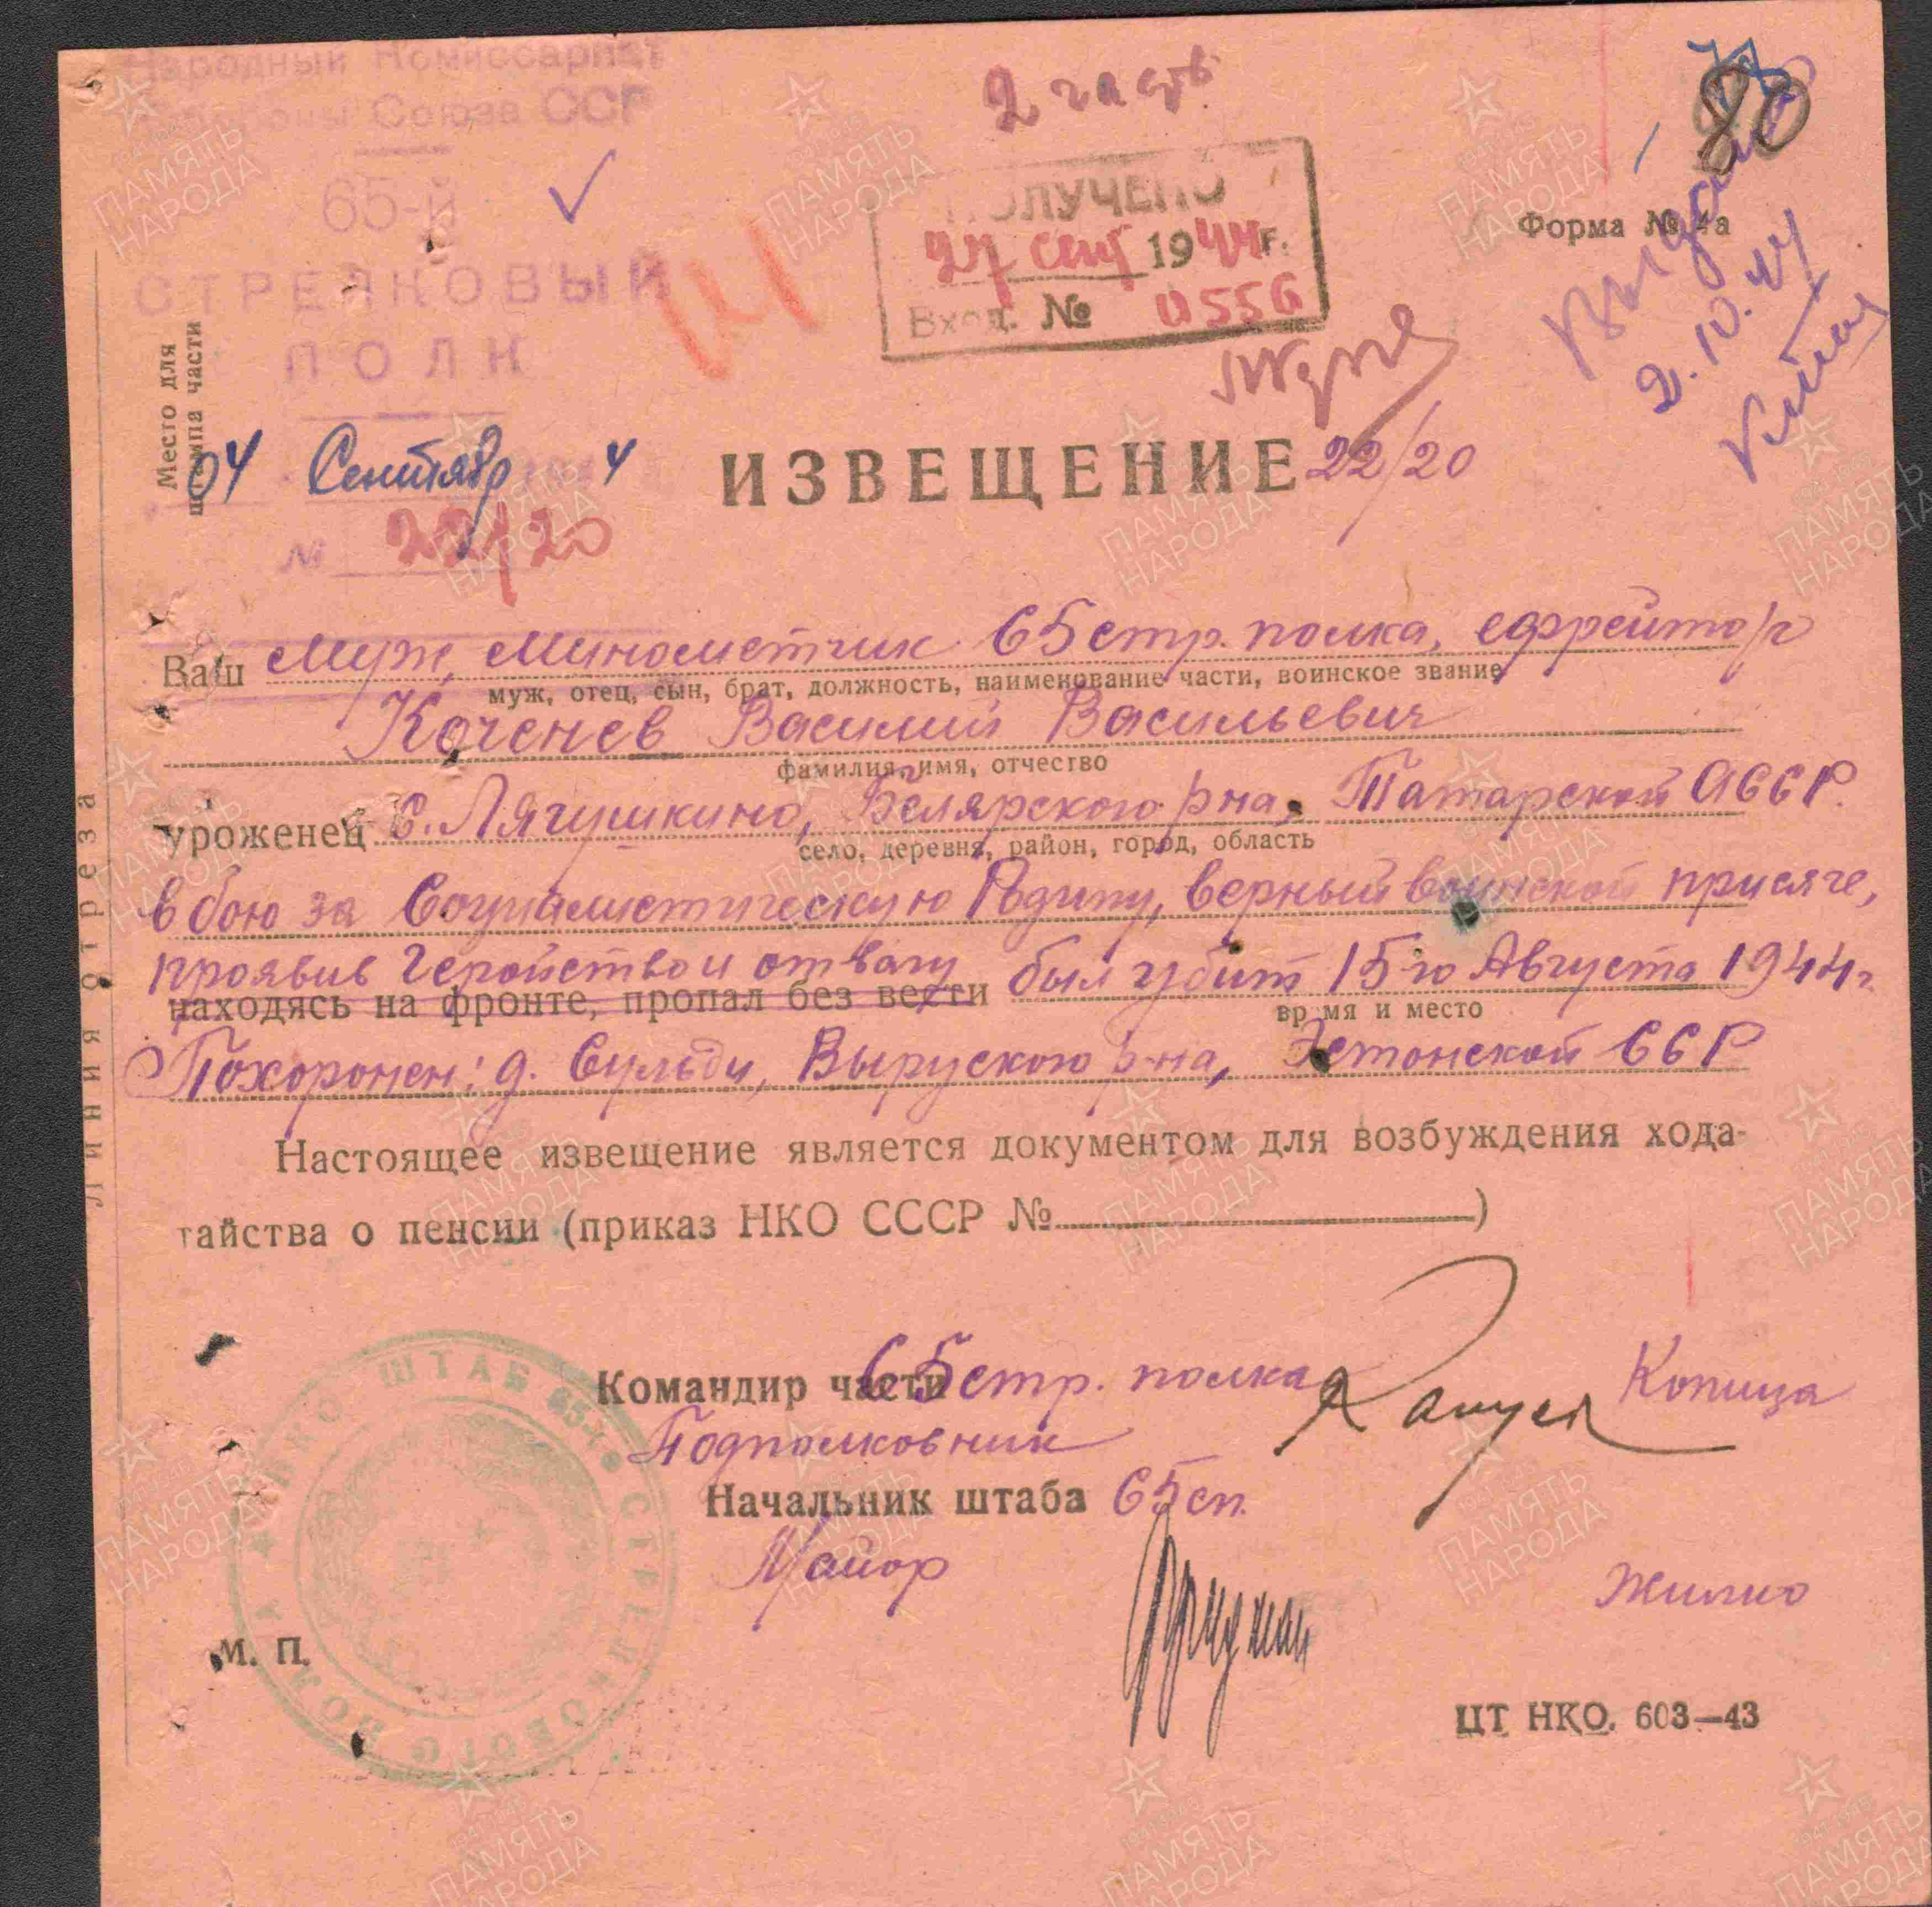 Народный Комиссариат
Обороны Союза ССР
65-й
СТРЕЛКОВЫЙ
ПОЛК
Место для
штампа части
04 Сентябр 4
№ 22/20
2 часть
ПОЛУЧЕНО
27 сент 1944 г.
Вход. №
80
Форма № 4а
2.10.44
ИЗВЕЩЕНИЕ 22/20
Ваш Муж, Минометчик 65 стр. полка, ефрейтор
муж, отец, сын, брат, должность, наименование части, воинское звание
Коченев Василий Васильевич
фамилия, имя, отчество
уроженец с. Лягушкино, Белярского р-на, Татарской АССР.
село, деревня, район, город, область
в бою за Социалистическую Родину, верный воинской присяге,
проявив геройство и отвагу был убит 15го Августа 1944г
находясь на фронте, пропал без вести
вр мя и место
Похоронен: д. Сульби, Выруского р-на, Эстонской ССР
Настоящее извещение является документом для возбуждения хода-
тайства о пенсии (приказ НКО СССР № )
Командир части 65 стр. полка Копица
Подполковник
Начальник штаба 65 сп.
Майор Жилко
М. П.
НКО ШТАБ 65-го СТРЕЛКОВОГО ПОЛКА
ЦТ НКО. 603—43
линия отреза
ПАМЯТЬ
НАРОДА